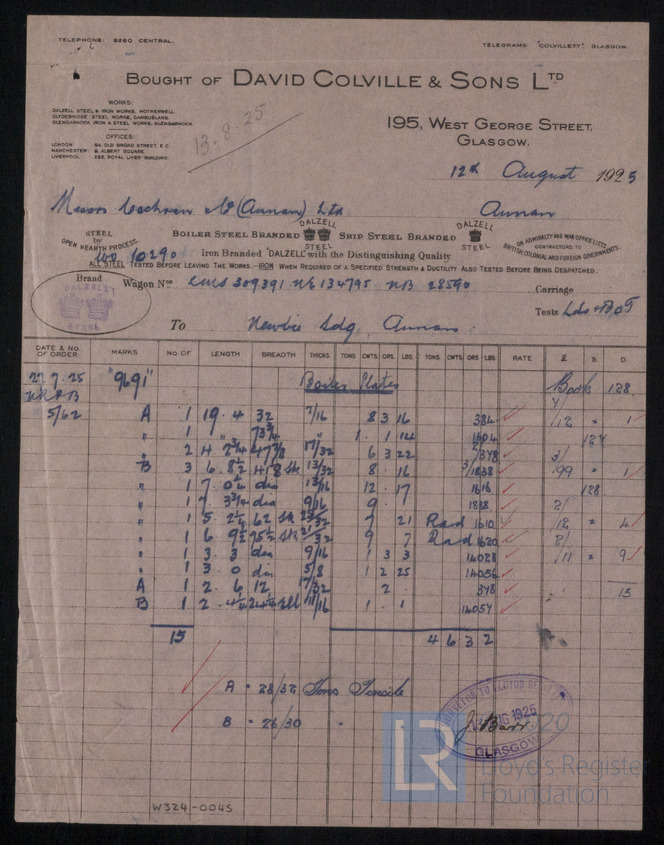 TELEPHONE: 9260 CENTRAL.
TELEGRAMS: "COLVILLETT" GLASGOW.
BOUGHT OF DAVID COLVILLE & SONS LTD
WORKS:
DALZELL STEEL & IRON WORKS, MOTHERWELL.
CLYDEBRIDGE STEEL WORKS, CAMBUSLANG.
GLENGARNOCK IRON & STEEL WORKS, GLENGARNOCK.
OFFICES:
LONDON 54, OLD BROAD STREET, E.C.
MANCHESTER: 8, ALBERT SQUARE.
LIVERPOOL: ROYAL LIVER BUILDING.
13-8-25
195, WEST GEORGE STREET,
GLASGOW.
12th August 1925
Messrs Cochran & Co (Annan) Ltd
Annan
STEEL by OPEN HEARTH PROCESS.
BOILER STEEL BRANDED DALZELL STEEL SHIP STEEL BRANDED DALZELL STEEL
ON ADMIRALTY AND WAR OFFICE LISTS. CONTRACTORS TO BRITISH COLONIAL AND FOREIGN GOVERNMENTS.
WO 10290
Iron Branded "DALZELL" with the Distinguishing Quality.
ALL STEEL TESTED BEFORE LEAVING THE WORKS.—IRON WHEN REQUIRED OF A SPECIFIED STRENGTH & DUCTILITY ALSO TESTED BEFORE BEING DESPATCHED.
Brand
DALZELL STEEL
Wagon Nos LMS 309391 NE 134795 NB 28590
Carriage
Tests Lds & BOT
To Newbie Sdg, Annan.
DATE & NO. OF ORDER MARKS NO. OF LENGTH BREADTH THICKS. TONS CWTS QRS LBS. TONS CWTS QRS LBS RATE £ S. D.
27.7.25 "9691" Boiler Plates Book 128
5/62 A 1 19.4 32 7/16 8 3 16 384
" 1 " 73¾ 1.1 14 1604
" 2 17/32 6 3 22 378
B 3 6.8½ 13/32 8.16 1838
" 1 7.0¼ dia 13/16 12.17 1616
" 1 7.3¾ dia 9/16 9. 1838
" 1 5.2¼ 62 7 21 Rad 1610
" 1 6 9½ 9 7 Rad 1620
" 1 3.3 dia 9/16 1 3 3 14028
" 1 3.0 dia 5/8 1 2 25 14056
A 1 2.6 12 17/32 2. 378
B 1 2. 11/16 1.1 14057
15 4 6 3 2
A = 28/32 Tons Tensile
B = 26/30 "
SURVEYOR TO LLOYDS
AUG 1925
J. Barr
GLASGOW
LR
Lloyd's Register
Foundation
W324-0045